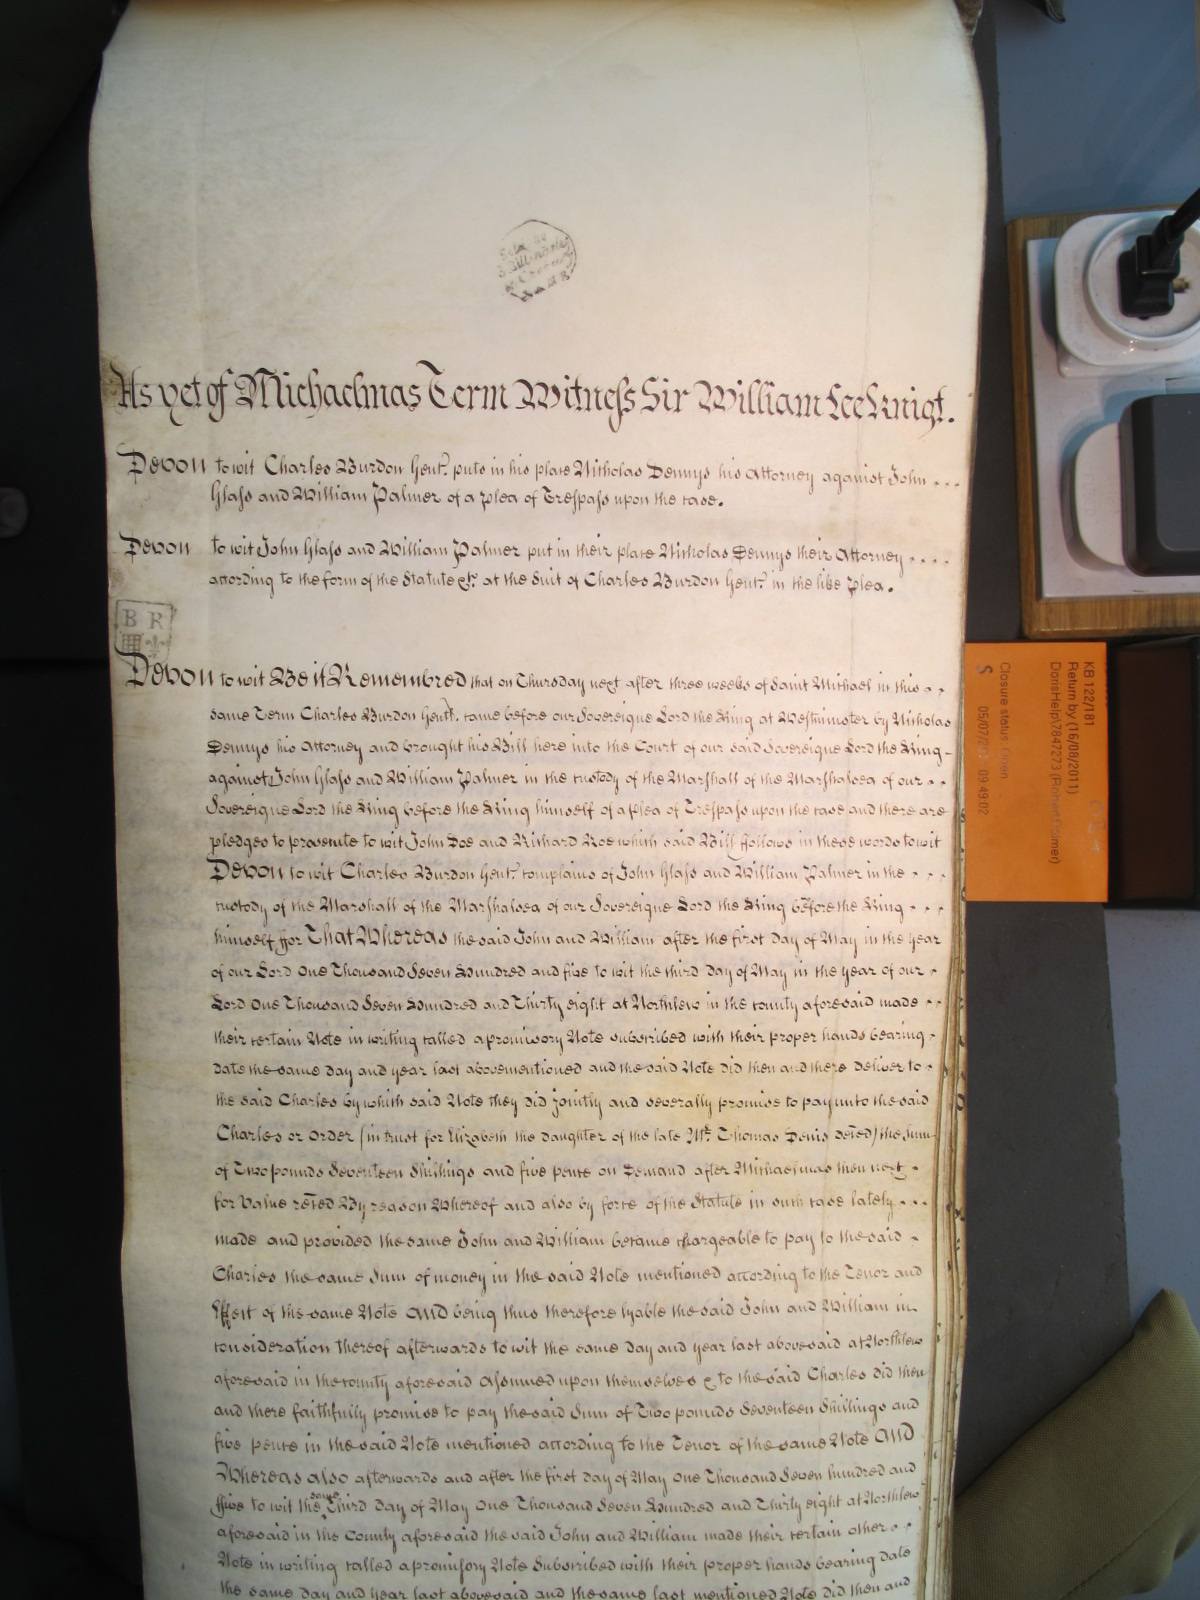 As yet of Michaelmas Term Witness Sir William Lee Knigt.
Devon to wit Charles Burdon Gent. puts in his place Nicholas Dennys his Attorney against John
Glass and William Palmer of a plea of Trespass upon the case.
Devon to wit John Glass and William Palmer put in their place Nicholas Dennys their Attorney
according to the form of the Statute &c. at the Suit of Charles Burdon Gent. in the like plea.
B R
Devon to wit Be it Remembred that on Thursday next after three weeks of Saint Michael in this
same Term Charles Burdon Gent. came before our Sovereigne Lord the King at Westminster by Nicholas
Dennys his Attorney and brought his Bill here into the Court of our said Sovereigne Lord the King
against John Glass and William Palmer in the custody of the Marshall of the Marshalsea of our
Sovereigne Lord the King before the King himself of a plea of Trespass upon the case and there are
pledges to prosecute to wit John Doe and Richard Roe which said Bill ffollows in these words to wit
Devon to wit Charles Burdon Gent. complains of John Glass and William Palmer in the
custody of the Marshall of the Marshalsea of our Sovereigne Lord the King before the King
himself ffor That Whereas the said John and William after the first day of May in the year
of our Lord One Thousand Seven Hundred and five to wit the third day of May in the year of our
Lord One Thousand Seven Hundred and Thirty eight at Northlew in the county aforesaid made
their certain Note in writing called a promisory Note subscribed with their proper hands bearing
date the same day and year last abovementioned and the said Note did then and there deliver to
the said Charles by which said Note they did jointly and severally promise to pay unto the said
Charles or order (in trust for Elizabeth the daughter of the late Mr. Thomas Denis deced) the sum
of Two pounds Seventeen Shillings and five pence on Demand after Michaelmas then next
for Value reced By reason Whereof and also by force of the Statute in such case lately
made and provided the same John and William became chargeable to pay to the said
Charles the same Sum of money in the said Note mentioned according to the Tenor and
Effect of the same Note And being thus therefore lyable the said John and William in
consideration thereof afterwards to wit the same day and year last abovesaid at Northlew
aforesaid in the county aforesaid assumed upon themselves & to the said Charles did then
and there faithfully promise to pay the said Sum of Two pounds Seventeen Shillings and
five pence in the said Note mentioned according to the Tenor of the same Note And
Whereas also afterwards and after the first day of May One Thousand Seven hundred and
ffive to wit the same Third day of May One Thousand Seven Hundred and Thirty eight at Northlew
aforesaid in the County aforesaid the said John and William made their certain other
Note in writing called a promisory Note Subscribed with their proper hands bearing date
the same day and year last abovesaid and the same last mentioned Note did then and
KB 122/181
Return by (16/08/2011)
DorisHelp\7847273 (Robert Palmer)
Closure status: Open
S 05/07/2011 09:49:02